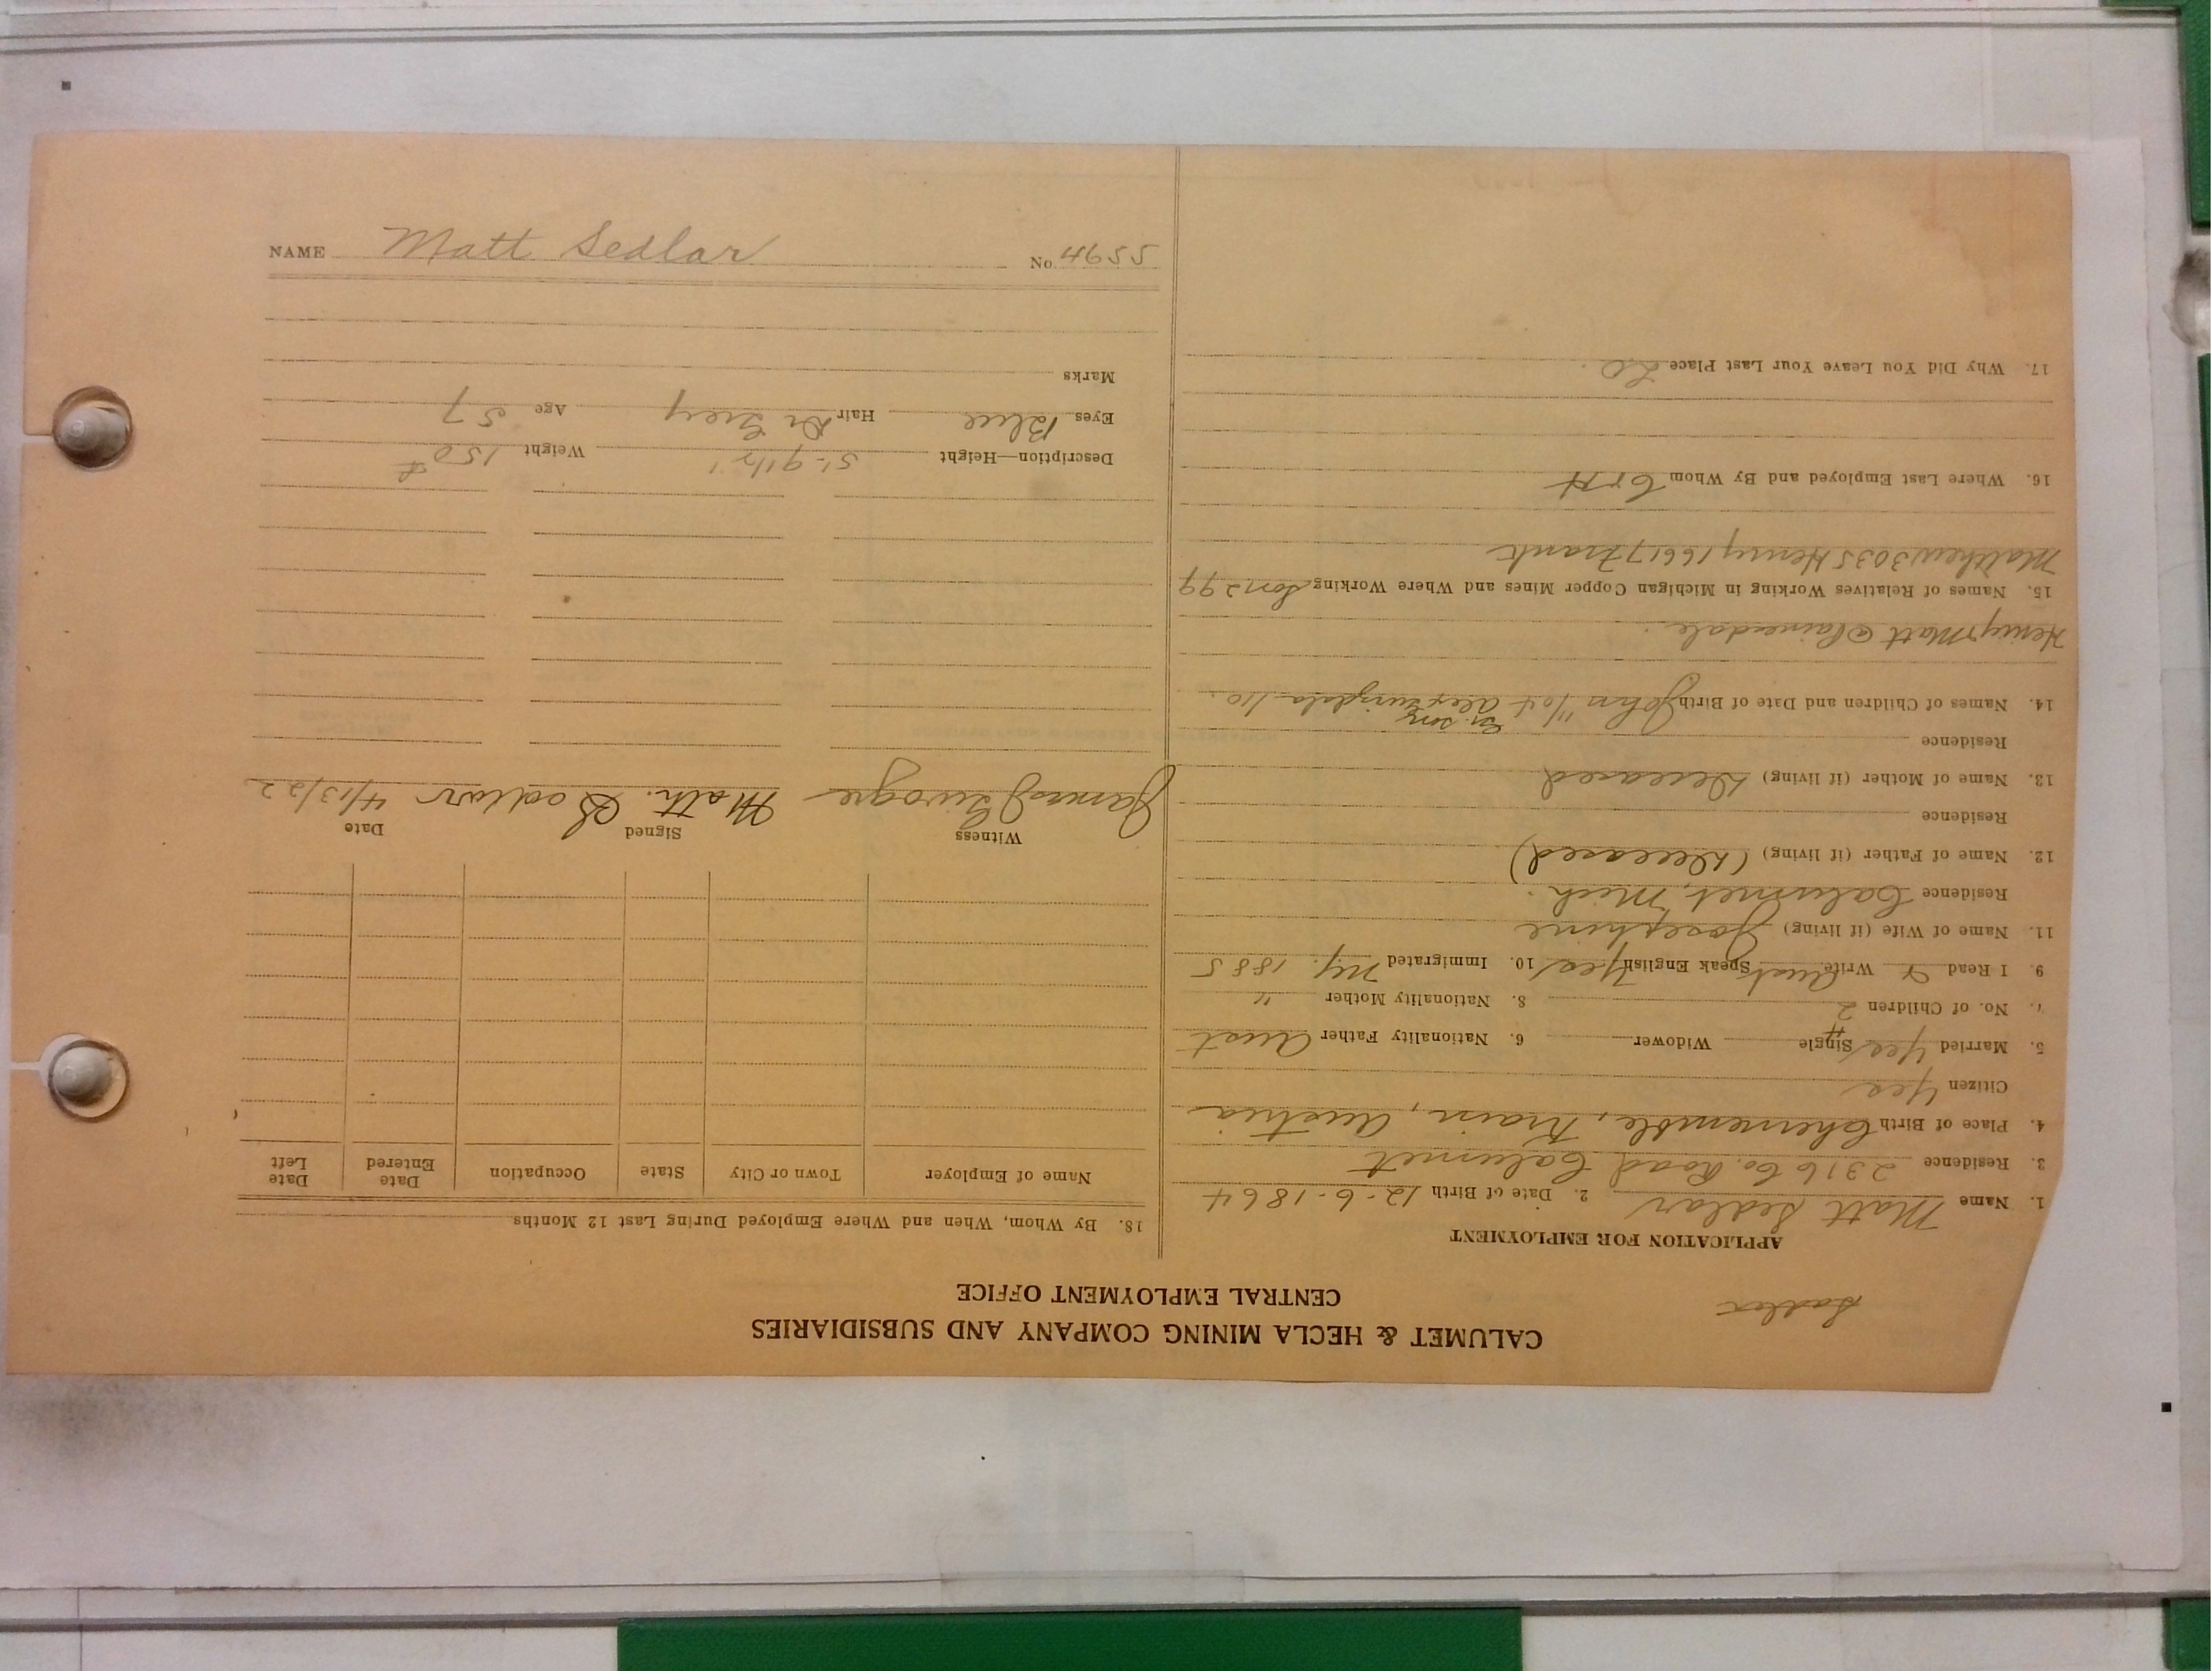 CALUMET & HECLA MINING COMPANY AND SUBSIDIARIES
CENTRAL EMPLOYMENT OFFICE
APPLICATION FOR EMPLOYMENT
1. Name Matt Sedlar 2. Date of Birth 12-6-1864
3. Residence 2316 Co. Road Calumet
4. Place of Birth Chernemble, Krain, Austria
Citizen Yes
5. Married Yes Single Widower 6. Nationality Father Aust
7. No. of Children 2 8. Nationality Mother "
9. I Read & Write Aust Speak English Yes 10. Immigrated N.Y. 1885
11. Name of Wife (if living) Josephine
Residence Calumet, Mich.
12. Name of Father (if living) (Deceased)
Residence
13. Name of Mother (if living) Deceased
Residence
14. Names of Children and Date of Birth John 11/04
Henry Matt
15. Names of Relatives Working in Michigan Copper Mines and Where Working Son 299
Matthew 3035 Henry 16617 Frank
16. Where Last Employed and By Whom C & H
17. Why Did You Leave Your Last Place L.O.
18. By Whom, When and Where Employed During Last 12 Months
Name of Employer Town or City State Occupation Date Entered Date Left
Witness Signed Date
James Math. Sedlar 4/13/22
Description—Height 5'-9 1/2" Weight 150 #
Eyes Blue Hair Dk Grey Age 57
Marks
NAME Matt Sedlar No. 4655